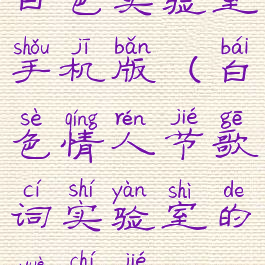 白色实验室
shǒu jī bǎn bái
手机版（白
sè qíng rén jié gē
色情人节歌
cí shí yàn shì de
词实验室的
chí jié